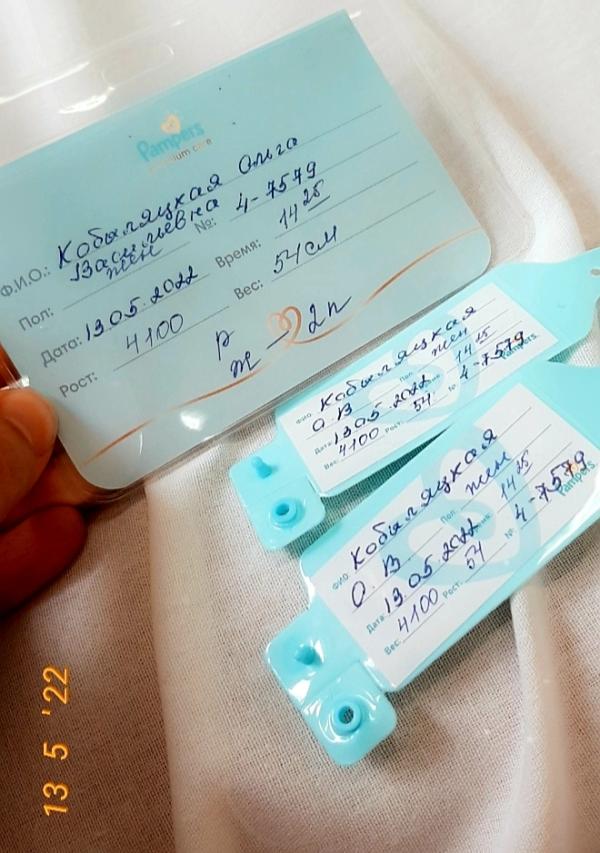 Pampers
premium care
Ф.И.О.: Кобыляцкая Ольга
Васильевна
Пол: жен №: 4-7579
Дата: 13.05.2022 Время: 14 25
Рост: 4100 Вес: 54 см
P
m - 2п
ФИО Кобыляцкая
О. В Пол жен
Дата 13.05.2022 14 25
Вес: 4100 Рост: 54 № 4-7579
Pampers
ФИО Кобыляцкая
О. В Пол: жен
Дата 13.05.2022 14 25
Вес: 4100 Рост: 54 № 4-7579
Pampers
13 5 '22